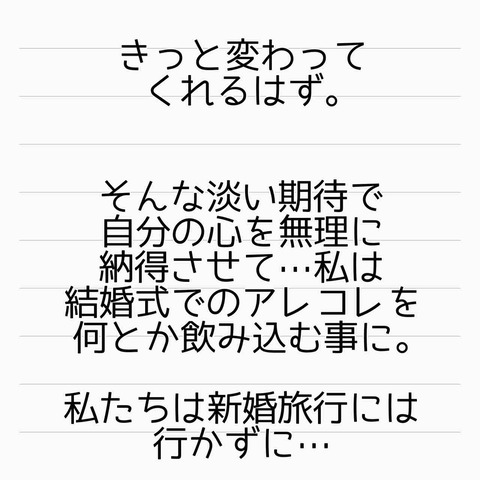 きっと変わって
くれるはず。
そんな淡い期待で
自分の心を無理に
納得させて…私は
結婚式でのアレコレを
何とか飲み込む事に。
私たちは新婚旅行には
行かずに…